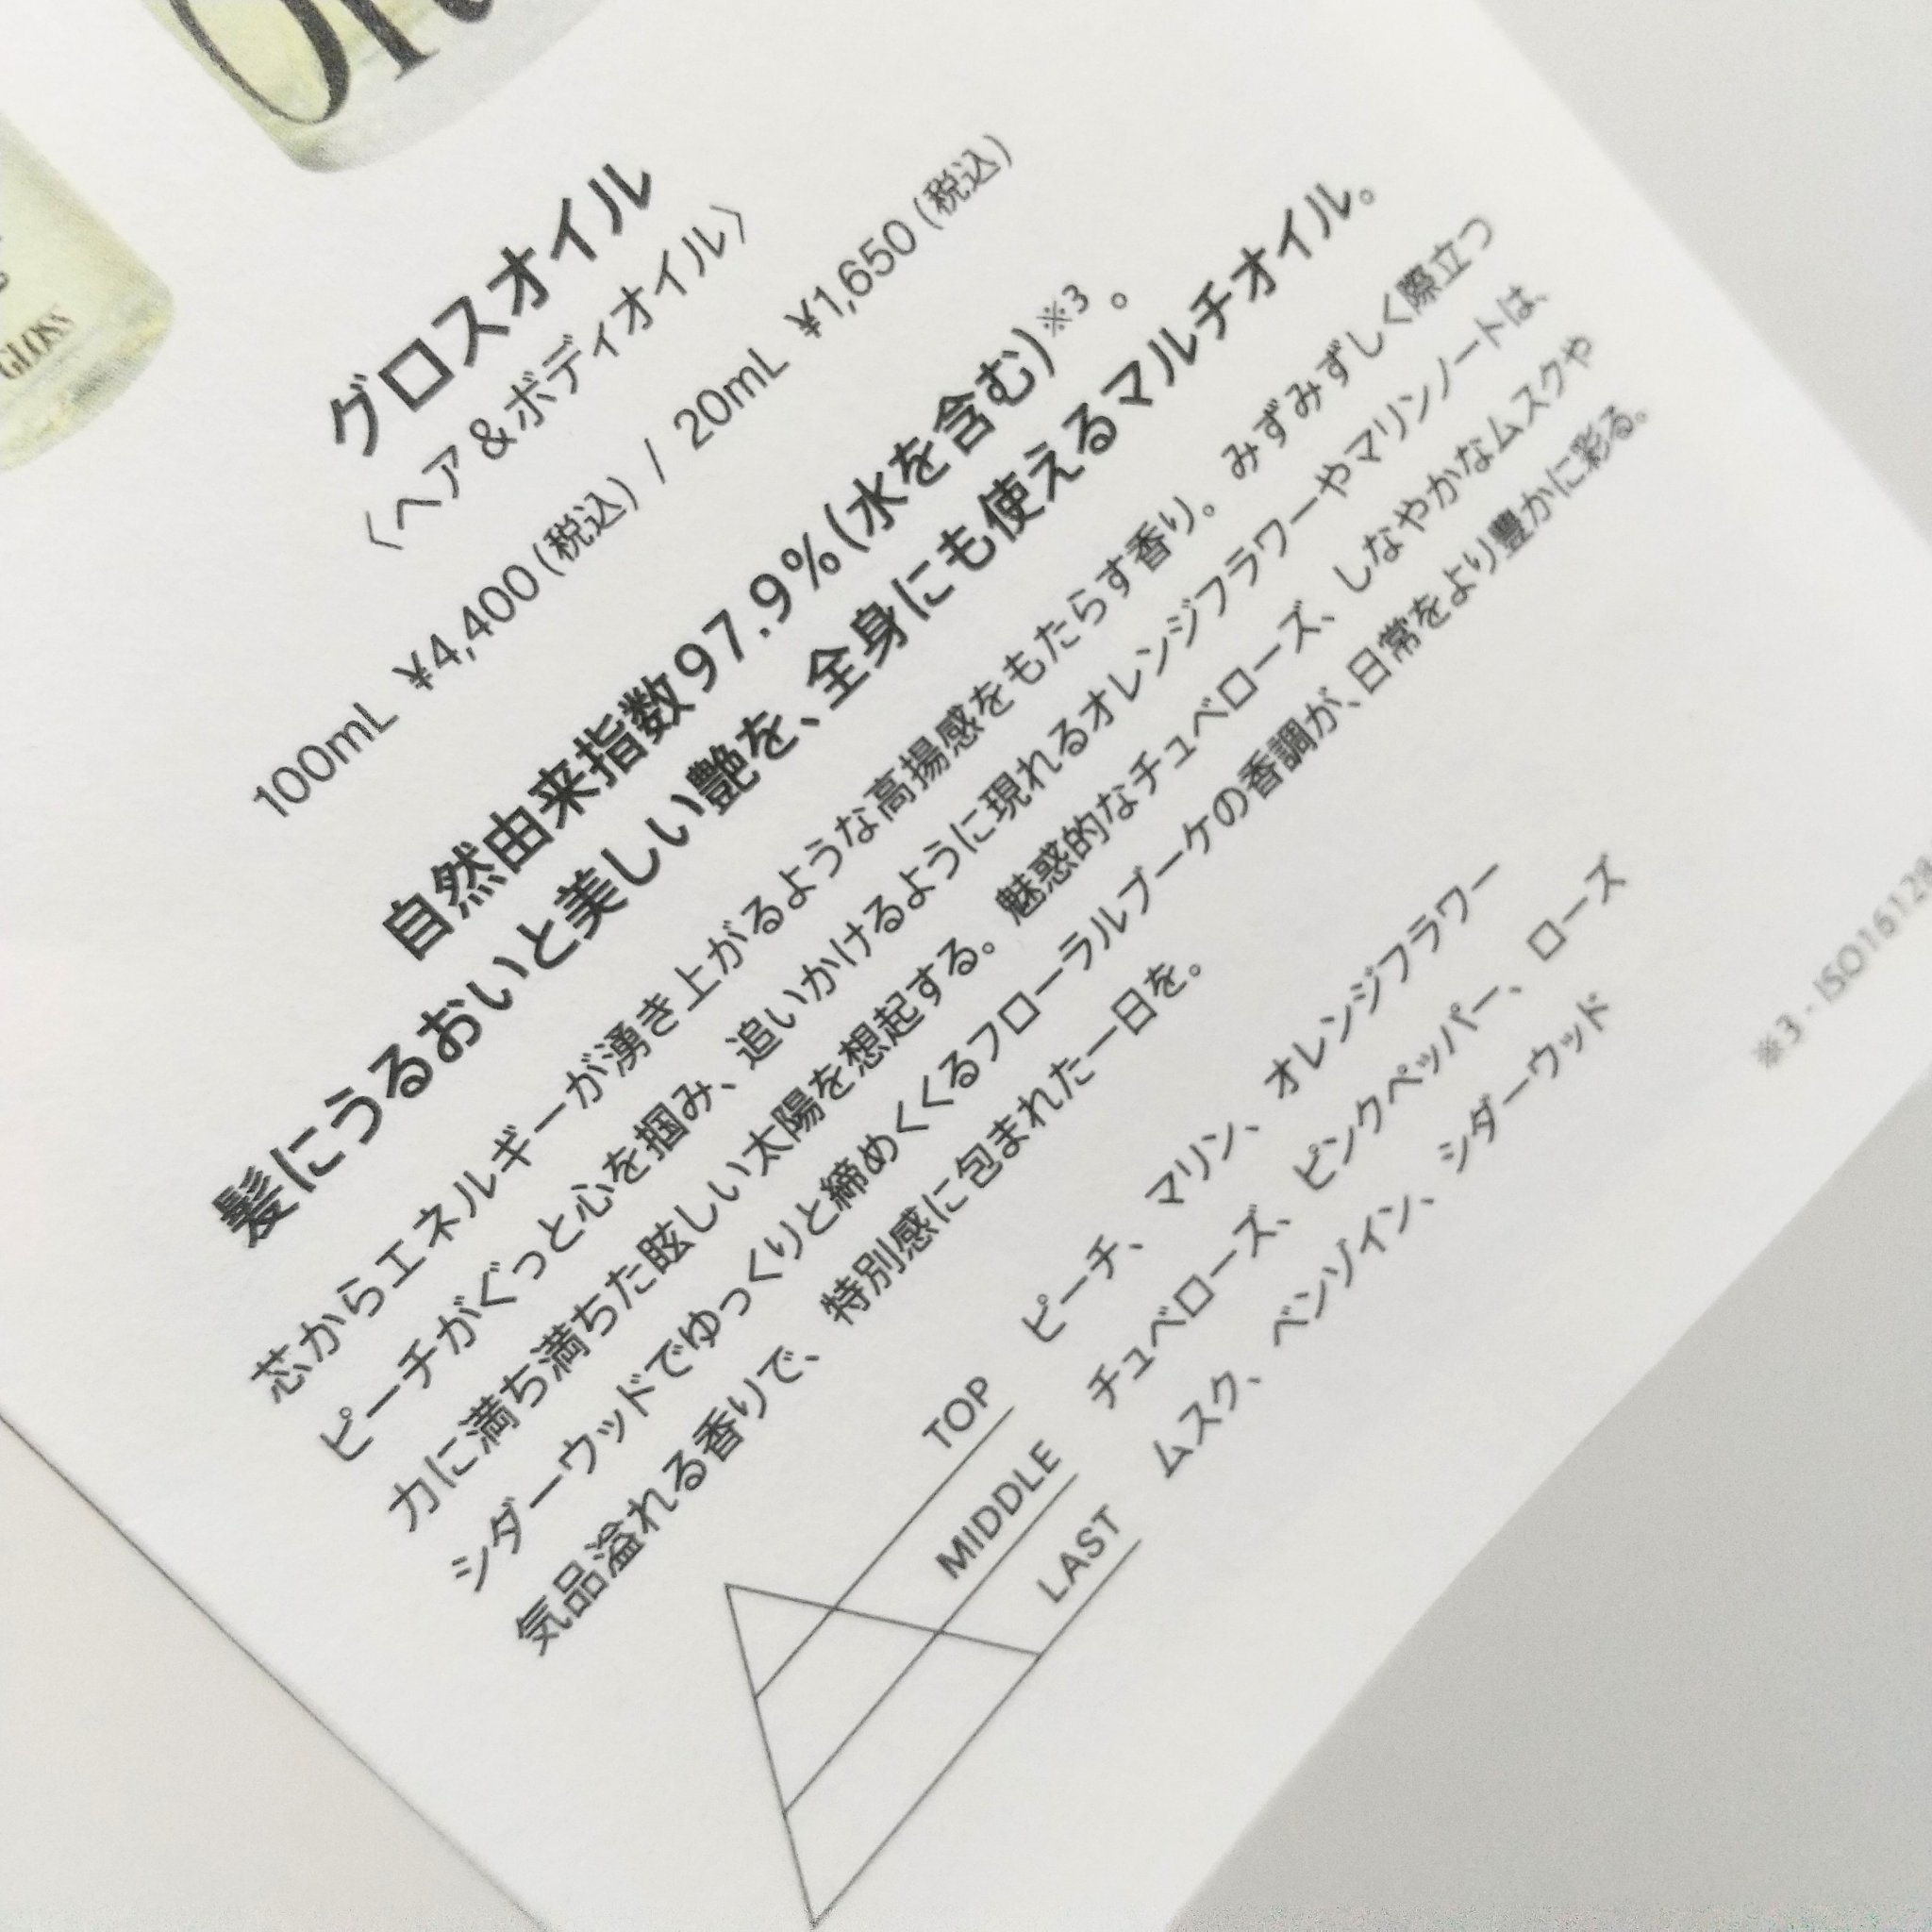 GLOSS
グロスオイル
〈ヘア&ボディオイル〉
100mL ¥4,400(税込) / 20mL ¥1,650(税込)
自然由来指数97.9%(水を含む)※3。
髪にうるおいと美しい艶を、全身にも使えるマルチオイル。
芯からエネルギーが湧き上がるような高揚感をもたらす香り。みずみずしく際立つ
ピーチがぐっと心を掴み、追いかけるように現れるオレンジフラワーやマリンノートは、
力に満ち満ちた眩しい太陽を想起する。魅惑的なチュベローズ、しなやかなムスクや
シダーウッドでゆっくりと締めくくるフローラルブーケの香調が、日常をより豊かに彩る。
気品溢れる香りで、特別感に包まれた一日を。
TOP ピーチ、マリン、オレンジフラワー
MIDDLE チュベローズ、ピンクペッパー、ローズ
LAST ムスク、ベンゾイン、シダーウッド
※3 - ISO16128